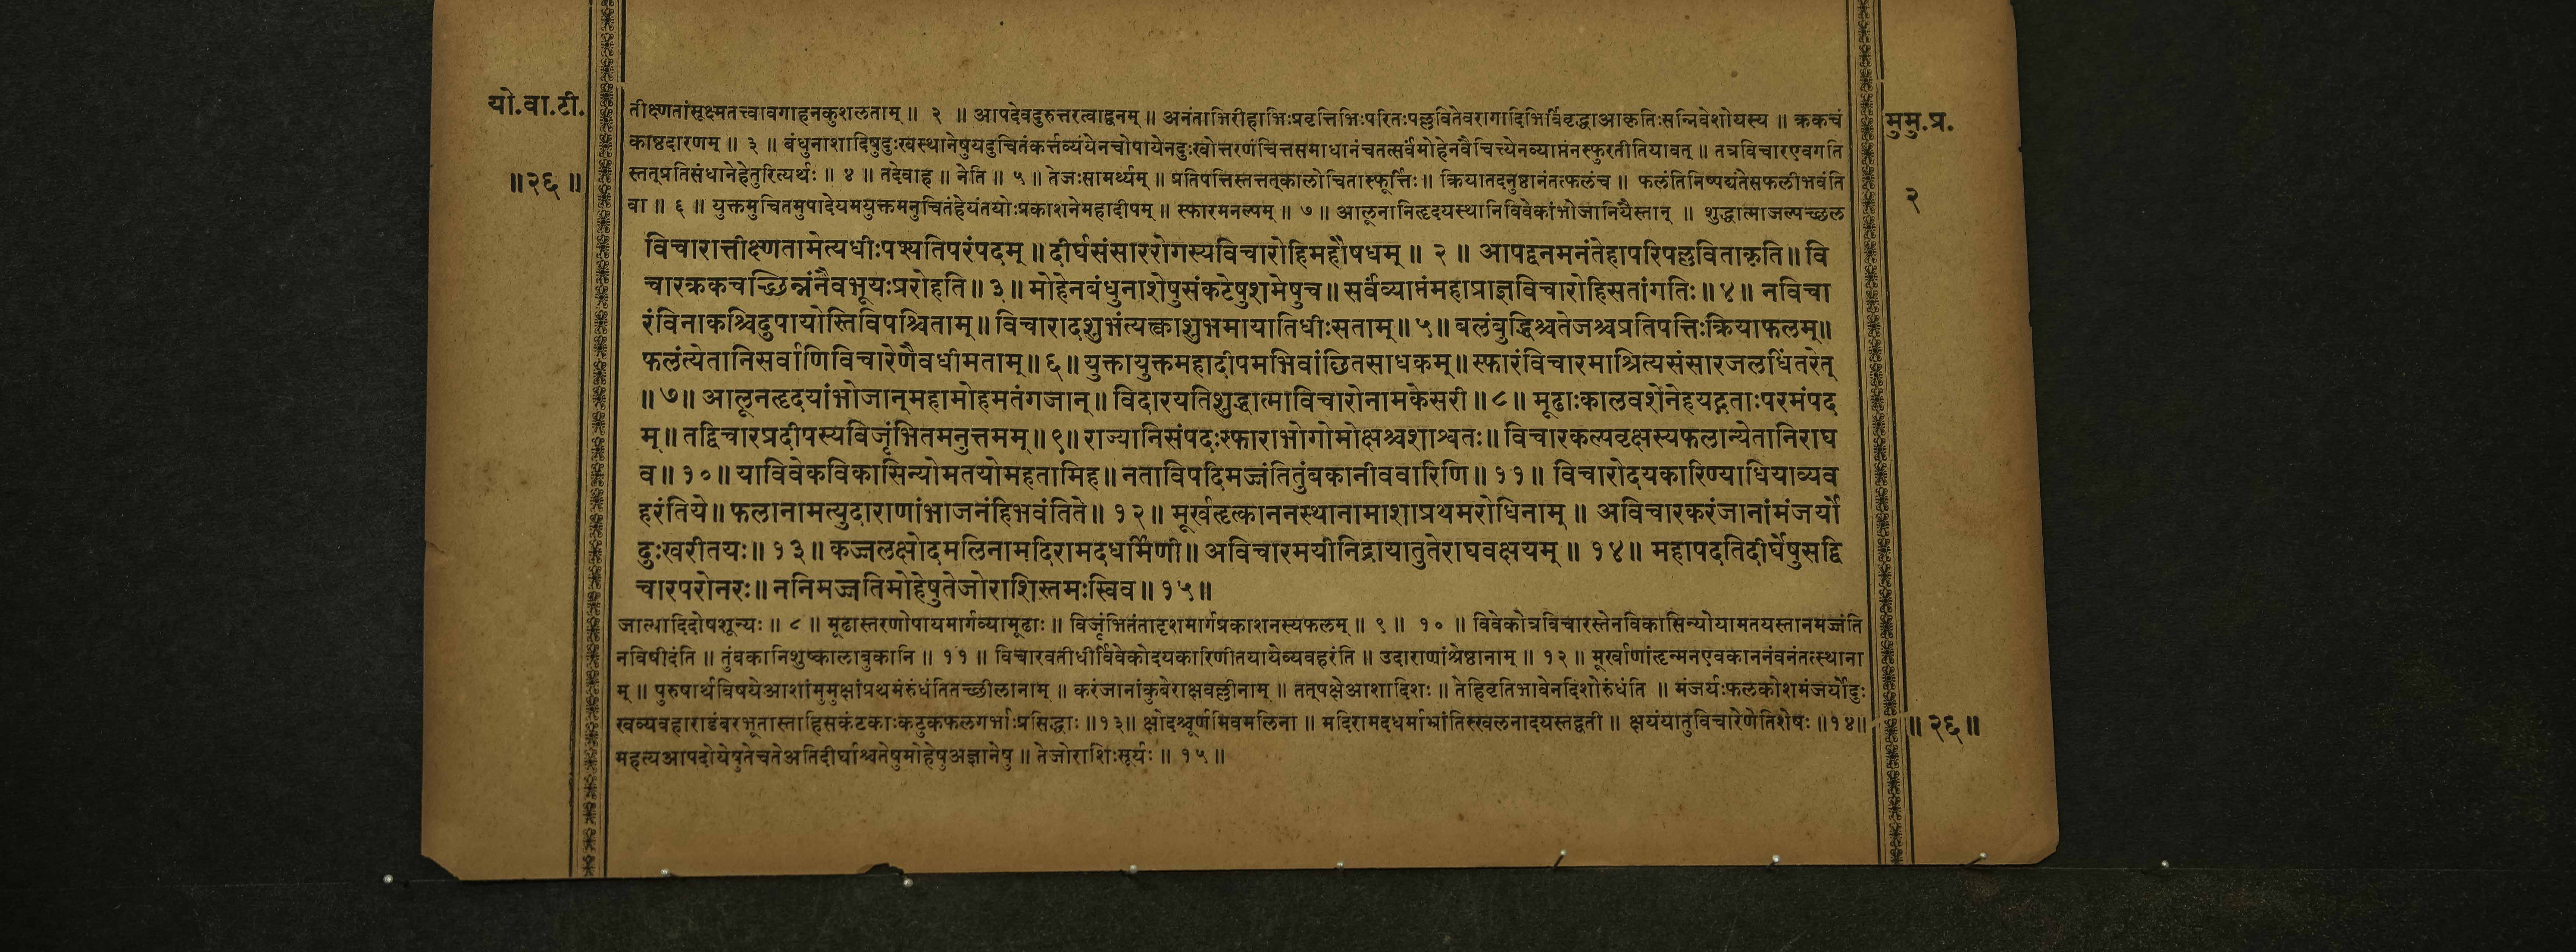 यो.वा.टी.
॥२६॥
तीक्ष्णतांसूक्ष्मतत्त्वावगाहनकुशलताम् ॥ २ ॥ आपदेवदुरुत्तरत्वाद्वनम् ॥ अनंताभिरीहाभिःप्रवृत्तिभिःपरितःपल्लवितेवरागादिभिर्विवृद्धाआकृतिःसन्निवेशोयस्य ॥ क्रकचं
काष्ठदारणम् ॥ ३ ॥ बंधुनाशादिषुदुःखस्थानेषुयदुचितंकर्त्तव्यंयेनचोपायेनदुःखोत्तरणंचित्तसमाधानंचतत्सर्वंमोहेनवैचित्त्येनव्याप्तंनस्फुरतीतियावत् ॥ तत्रविचारएवगति
स्तत्प्रतिसंधानेहेतुरित्यर्थः ॥ ४ ॥ तदेवाह ॥ नेति ॥ ५ ॥ तेजःसामर्थ्यम् ॥ प्रतिपत्तिस्तत्तत्कालोचितास्फूर्त्तिः ॥ क्रियातदनुष्ठानंतत्फलंच ॥ फलंतिनिष्पद्यंतेसफलीभवंति
वा ॥ ६ ॥ युक्तमुचितमुपादेयमयुक्तमनुचितंहेयंतयोःप्रकाशनेमहादीपम् ॥ स्फारमनल्पम् ॥ ७ ॥ आलूनानिहृदयस्थानिविवेकांभोजानियैस्तान् ॥ शुद्धात्माजल्पच्छल
विचारात्तीक्ष्णतामेत्यधीःपश्यतिपरंपदम् ॥ दीर्घसंसाररोगस्यविचारोहिमहौषधम् ॥ २ ॥ आपद्वनमनंतेहापरिपल्लविताकृति ॥ वि
चारक्रकचच्छिन्नंनैवभूयःप्ररोहति ॥ ३ ॥ मोहेनबंधुनाशेषुसंकटेषुशमेषुच ॥ सर्वंव्याप्तंमहाप्राज्ञविचारोहिसतांगतिः ॥ ४ ॥ नविचा
रंविनाकश्चिदुपायोस्तिविपश्चिताम् ॥ विचारादशुभंत्यक्त्वाशुभमायातिधीःसताम् ॥ ५ ॥ बलंबुद्धिश्चतेजश्चप्रतिपत्तिःक्रियाफलम् ॥
फलंत्येतानिसर्वाणिविचारेणैवधीमताम् ॥ ६ ॥ युक्तायुक्तमहादीपमभिवांछितसाधकम् ॥ स्फारंविचारमाश्रित्यसंसारजलधिंतरेत्
॥ ७ ॥ आलूनहृदयांभोजान्महामोहमतंगजान् ॥ विदारयतिशुद्धात्माविचारोनामकेसरी ॥ ८ ॥ मूढाःकालवशेनेहयद्गताःपरमंपद
म् ॥ तद्विचारप्रदीपस्यविजृंभितमनुत्तमम् ॥ ९ ॥ राज्यानिसंपदःस्फाराभोगोमोक्षश्चशाश्वतः ॥ विचारकल्पवृक्षस्यफलान्येतानिराघ
व ॥ १० ॥ याविवेकविकासिन्योमतयोमहतामिह ॥ नताविपदिमज्जंतितुंबकानीववारिणि ॥ ११ ॥ विचारोदयकारिण्याधियाव्यव
हरंतिये ॥ फलानामत्युदाराणांभाजनंहिभवंतिते ॥ १२ ॥ मूर्खहृत्काननस्थानामाशाप्रथमरोधिनाम् ॥ अविचारकरंजानांमंजर्यो
दुःखरीतयः ॥ १३ ॥ कज्जलक्षोदमलिनामदिरामदधर्मिणी ॥ अविचारमयीनिद्रायातुतेराघवक्षयम् ॥ १४ ॥ महापदतिदीर्घेषुसद्वि
चारपरोनरः ॥ ननिमज्जतिमोहेषुतेजोराशिस्तमःस्विव ॥ १५ ॥
जात्यादिदोषशून्यः ॥ ८ ॥ मूढास्तरणोपायमार्गव्यामूढाः ॥ विजृंभितंतादृशमार्गप्रकाशनस्यफलम् ॥ ९ ॥ १० ॥ विवेकोत्रविचारस्तेनविकासिन्योयामतयस्तानमज्जंति
नविषीदंति ॥ तुंबकानिशुष्कालाबुकानि ॥ ११ ॥ विचारवतीधीर्विवेकोदयकारिणीतयायेव्यवहरंति ॥ उदाराणांश्रेष्ठानाम् ॥ १२ ॥ मूर्खाणांहृन्मनएवकाननंवनंतत्स्थाना
म् ॥ पुरुषार्थविषयेआशांमुमुक्षांप्रथमंरुंधंतितच्छीलानाम् ॥ करंजानांकुबेराक्षवल्लीनाम् ॥ तत्पक्षेआशादिशः ॥ तेहिवृतिभावेनदिशोरुंधंति ॥ मंजर्यःफलकोशमंजर्योदुः
खव्यवहाराडंबरभूतास्ताहिसकंटकाःकटुकफलगर्भाःप्रसिद्धाः ॥१३॥ क्षोदश्चूर्णमिवमलिना ॥ मदिरामदधर्माभ्रांतिस्खलनादयस्तद्वती ॥ क्षयंयातुविचारेणेतिशेषः ॥१४॥
महत्यआपदोयेषुतेचतेअतिदीर्घाश्चतेषुमोहेषुअज्ञानेषु ॥ तेजोराशिःसूर्यः ॥ १५ ॥
मुमु.प्र.
२
॥ २६ ॥